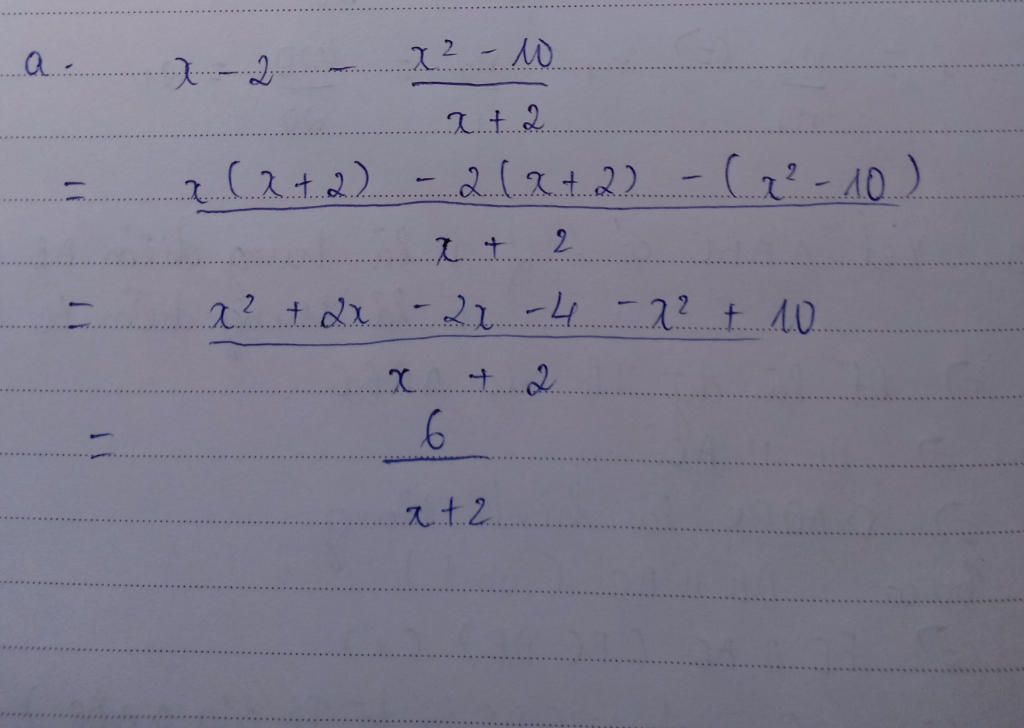 a. x - 2 - \frac{x² - 10}{x + 2}
= \frac{x(x + 2) - 2(x + 2) - (x² - 10)}{x + 2}
= \frac{x² + 2x - 2x - 4 - x² + 10}{x + 2}
= \frac{6}{x + 2}